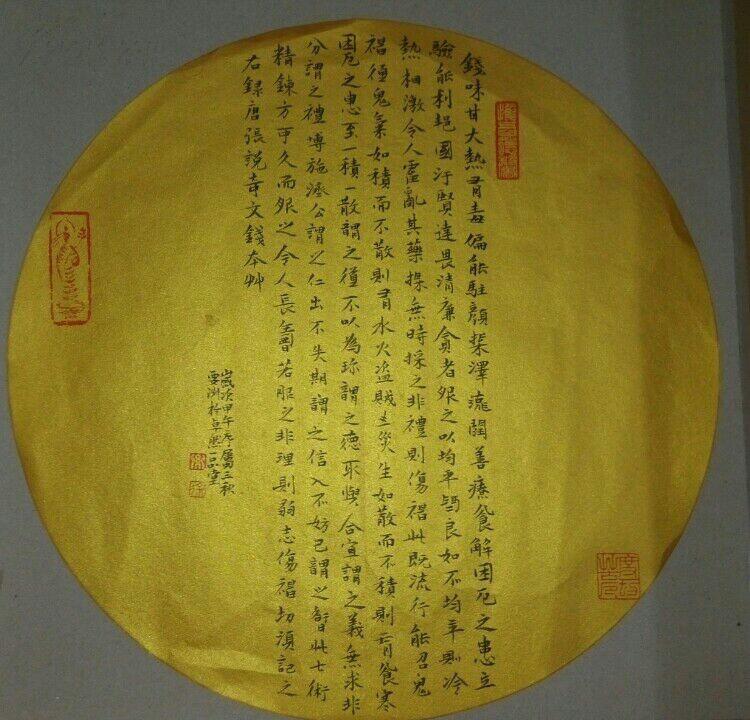 錢味甘大熱有毒偏能駐顏采澤流潤善療飢解困厄之患立
驗能利邦國汙賢達畏清廉貪者服之以均平爲良如不均平則冷
熱相激令人霍亂其藥採無時採之非禮則傷神此既流行能召鬼
神通鬼氣如積而不散則有水火盜賊之災生如散而不積則有飢寒
困厄之患至一積一散謂之道不以為珍謂之德取與合宜謂之義無求非
分謂之禮博施濟公謂之仁出不失期謂之信入不妨己謂之智此七術
精鍊方可久而服之令人長壽若服之非理則弱志傷神切須記之
右錄唐張說奇文錢本艸
歲次甲午序屬三秋
雲洲於卓然一品堂